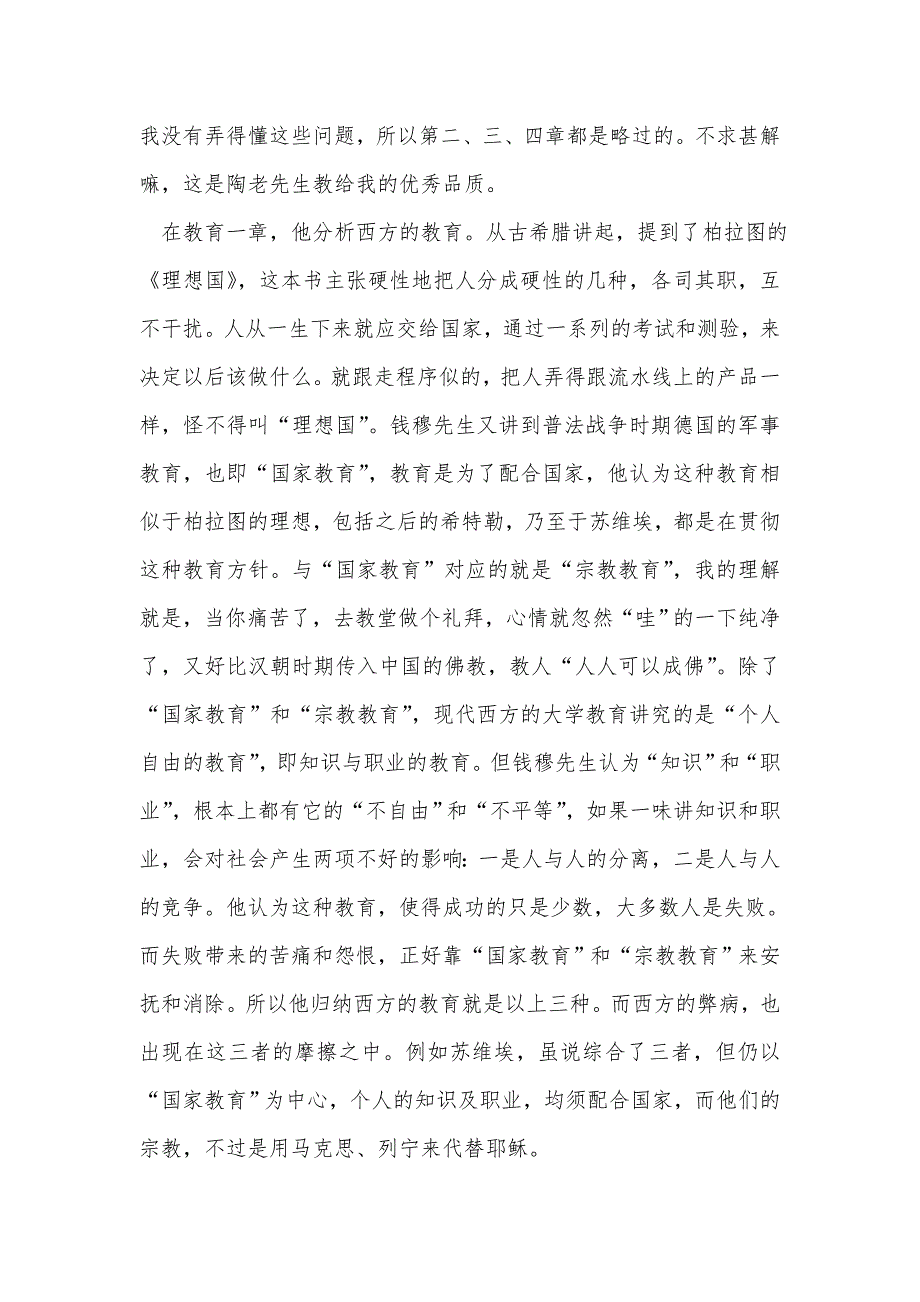 我没有弄得懂这些问题，所以第二、三、四章都是略过的。不求甚解
嘛，这是陶老先生教给我的优秀品质。
在教育一章，他分析西方的教育。从古希腊讲起，提到了柏拉图的
《理想国》，这本书主张硬性地把人分成硬性的几种，各司其职，互
不干扰。人从一生下来就应交给国家，通过一系列的考试和测验，来
决定以后该做什么。就跟走程序似的，把人弄得跟流水线上的产品一
样，怪不得叫“理想国”。钱穆先生又讲到普法战争时期德国的军事
教育，也即“国家教育”，教育是为了配合国家，他认为这种教育相
似于柏拉图的理想，包括之后的希特勒，乃至于苏维埃，都是在贯彻
这种教育方针。与“国家教育”对应的就是“宗教教育”，我的理解
就是，当你痛苦了，去教堂做个礼拜，心情就忽然“哇”的一下纯净
了，又好比汉朝时期传入中国的佛教，教人“人人可以成佛”。除了
“国家教育”和“宗教教育”，现代西方的大学教育讲究的是“个人
自由的教育”，即知识与职业的教育。但钱穆先生认为“知识”和“职
业”，根本上都有它的“不自由”和“不平等”，如果一味讲知识和职
业，会对社会产生两项不好的影响：一是人与人的分离，二是人与人
的竞争。他认为这种教育，使得成功的只是少数，大多数人是失败。
而失败带来的苦痛和怨恨，正好靠“国家教育”和“宗教教育”来安
抚和消除。所以他归纳西方的教育就是以上三种。而西方的弊病，也
出现在这三者的摩擦之中。例如苏维埃，虽说综合了三者，但仍以
“国家教育”为中心，个人的知识及职业，均须配合国家，而他们的
宗教，不过是用马克思、列宁来代替耶稣。